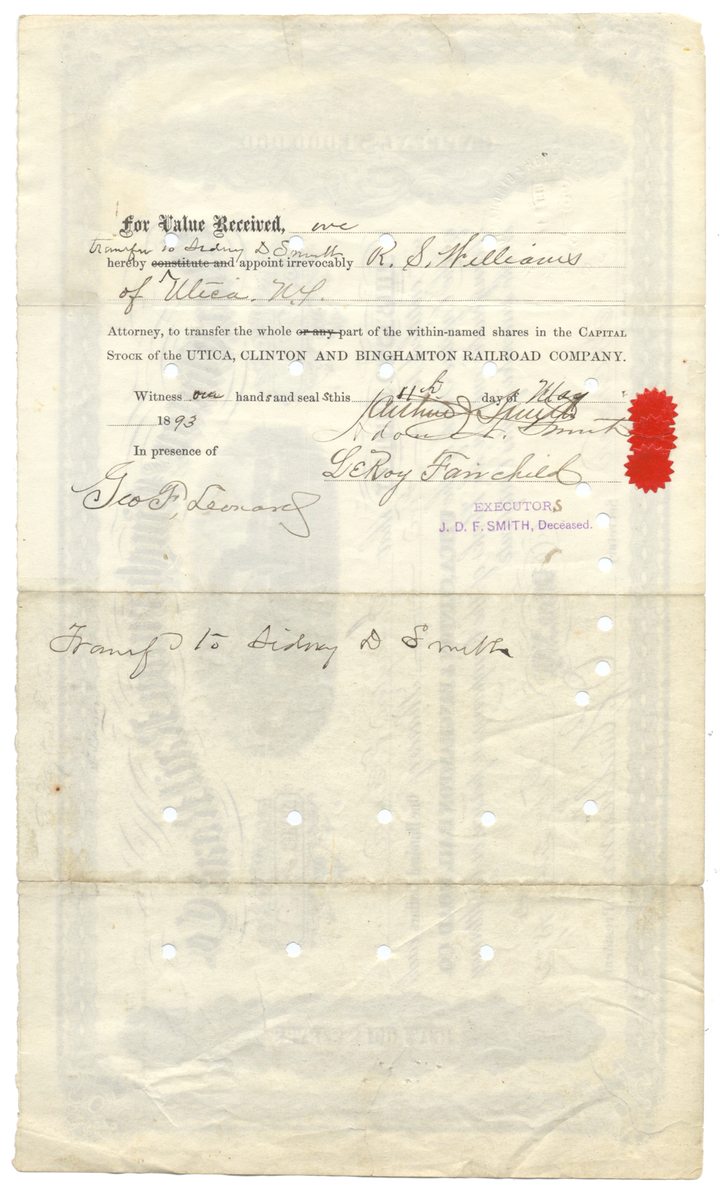 For Value Received, we
transfer to Sidney D Smith
hereby constitute and appoint irrevocably R. S. Williams
of Utica. N.Y.
Attorney, to transfer the whole or any part of the within-named shares in the CAPITAL
STOCK of the UTICA, CLINTON AND BINGHAMTON RAILROAD COMPANY.
Witness our hands and seals this 11th day of May
1893 Arthur Smith
Smith
In presence of
LeRoy Fairchild
Geo F, Leonard
EXECUTORS
J. D. F. SMITH, Deceased.
Transf to Sidney D Smith